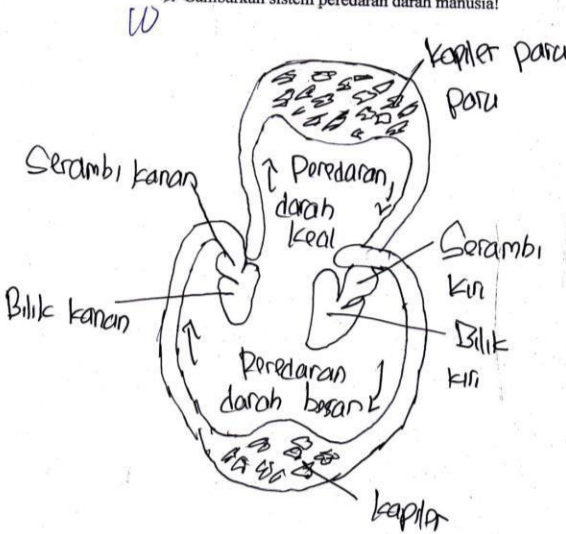 Gambarkan sistem peredaran darah manusia!
kapiler paru
paru
Serambi kanan
Peredaran
darah
keal
Serambi
kiri
Bilik kanan
Bilik
kiri
Peredaran
darah besar
kapiler